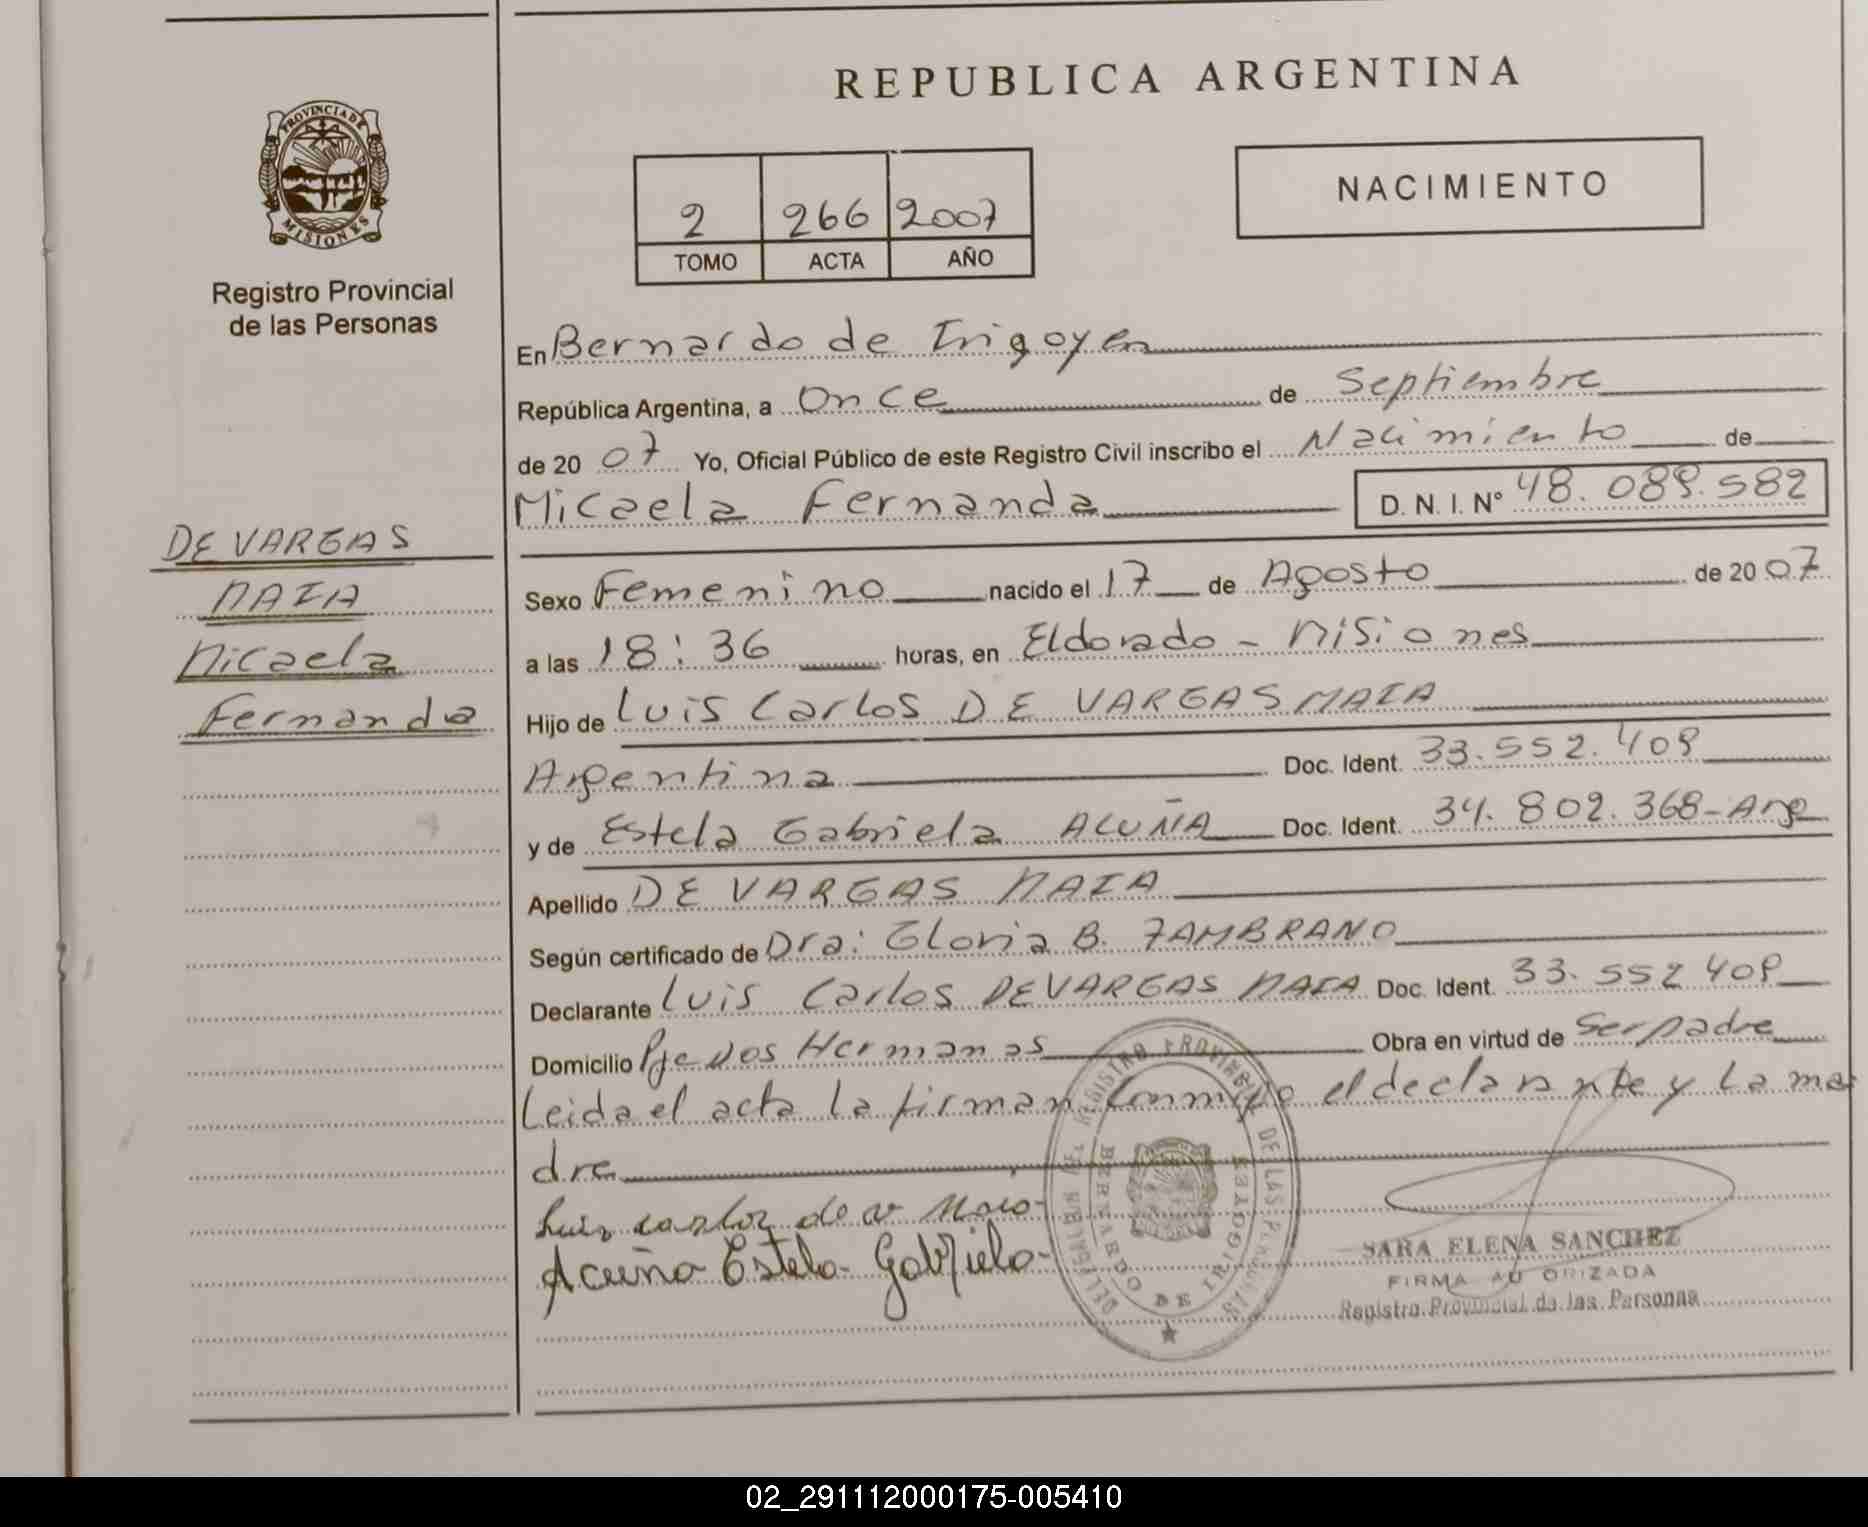 REPUBLICA ARGENTINA
PROVINCIA DE
MISIONES
Registro Provincial
de las Personas
2 266 2007
TOMO ACTA AÑO
NACIMIENTO
En Bernardo de Irigoyen
República Argentina, a Once de Septiembre
de 20 07 Yo, Oficial Público de este Registro Civil inscribo el Nacimiento de
Micaela Fernanda D. N. I. Nº 48.089.582
DE VARGAS
MAIA
Micaela
Fernanda
Sexo Femenino nacido el 17 de Agosto de 20 07
a las 18:36 horas, en Eldorado - Misiones
Hijo de Luis Carlos DE VARGAS MAIA
Argentina Doc. Ident. 33.552.409
y de Estela Gabriela ACUÑA Doc. Ident. 34.802.368-Arg
Apellido DE VARGAS MAIA
Según certificado de Dra: Gloria B. ZAMBRANO
Declarante Luis Carlos DE VARGAS MAIA Doc. Ident. 33.552 409
Domicilio Pje Dos Hermanas Obra en virtud de Ser padre
Leida el acta la firman conmigo el declarante y la ma
dre
Luis carlos de v Maia
Acuña Estela Gabriela
REGISTRO PROVINCIAL DE LAS PERSONAS
BERNARDO DE IRIGOYEN
SARA ELENA SANCHEZ
FIRMA AUTORIZADA
Registro Provincial de las Personas
02_291112000175-005410